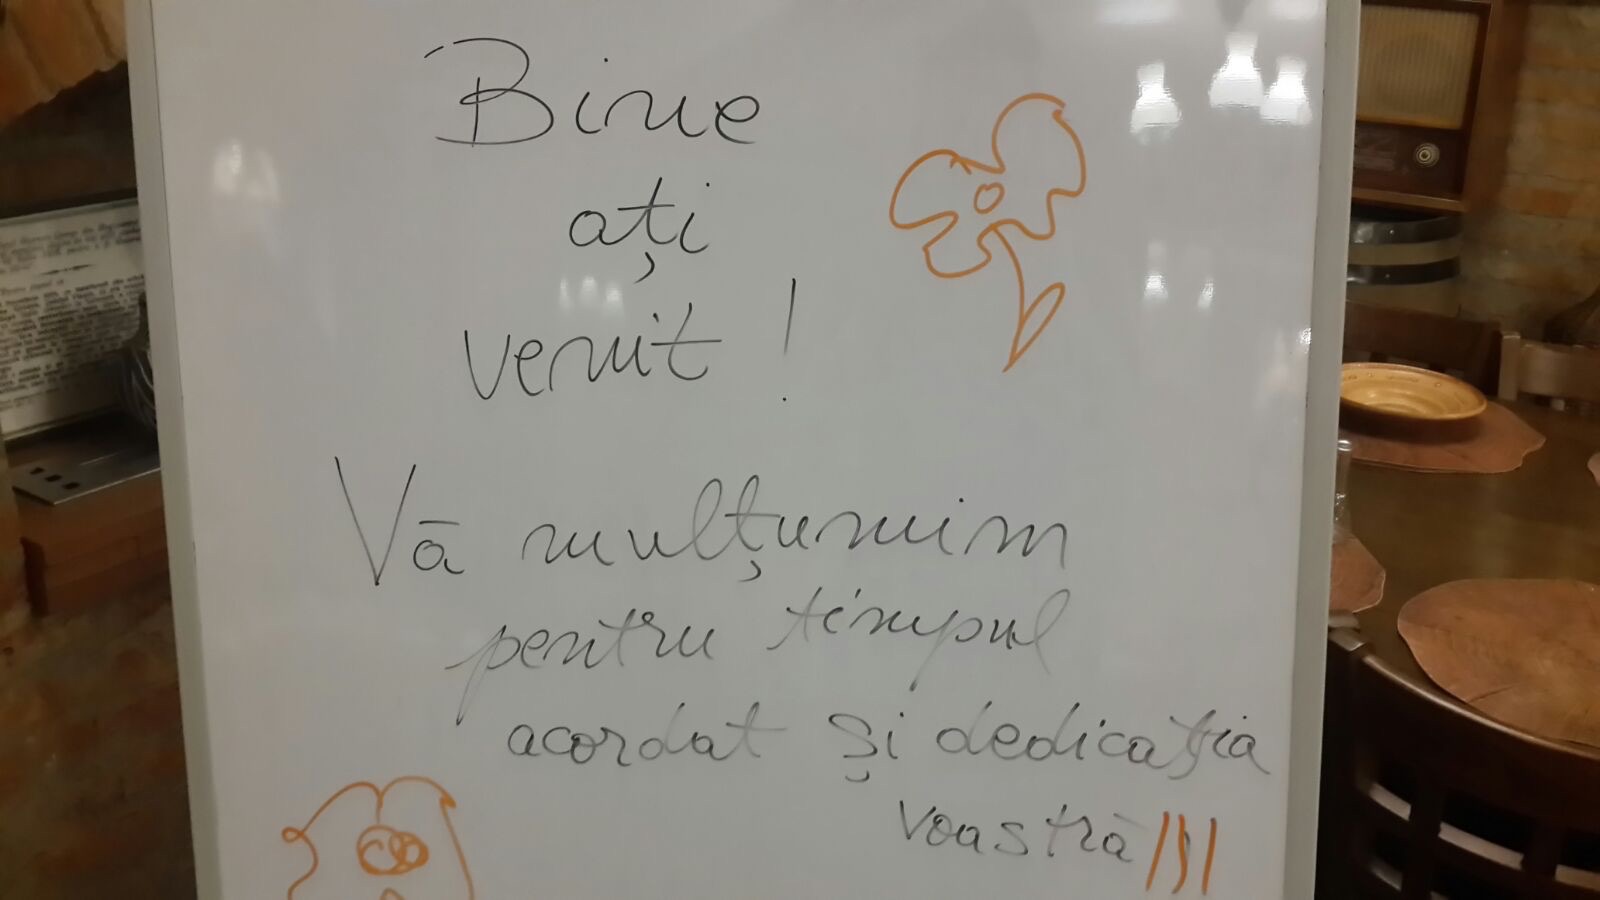 Bine
ați
venit!
Vă mulțumim
pentru timpul
acordat și dedicația
voastră!!!